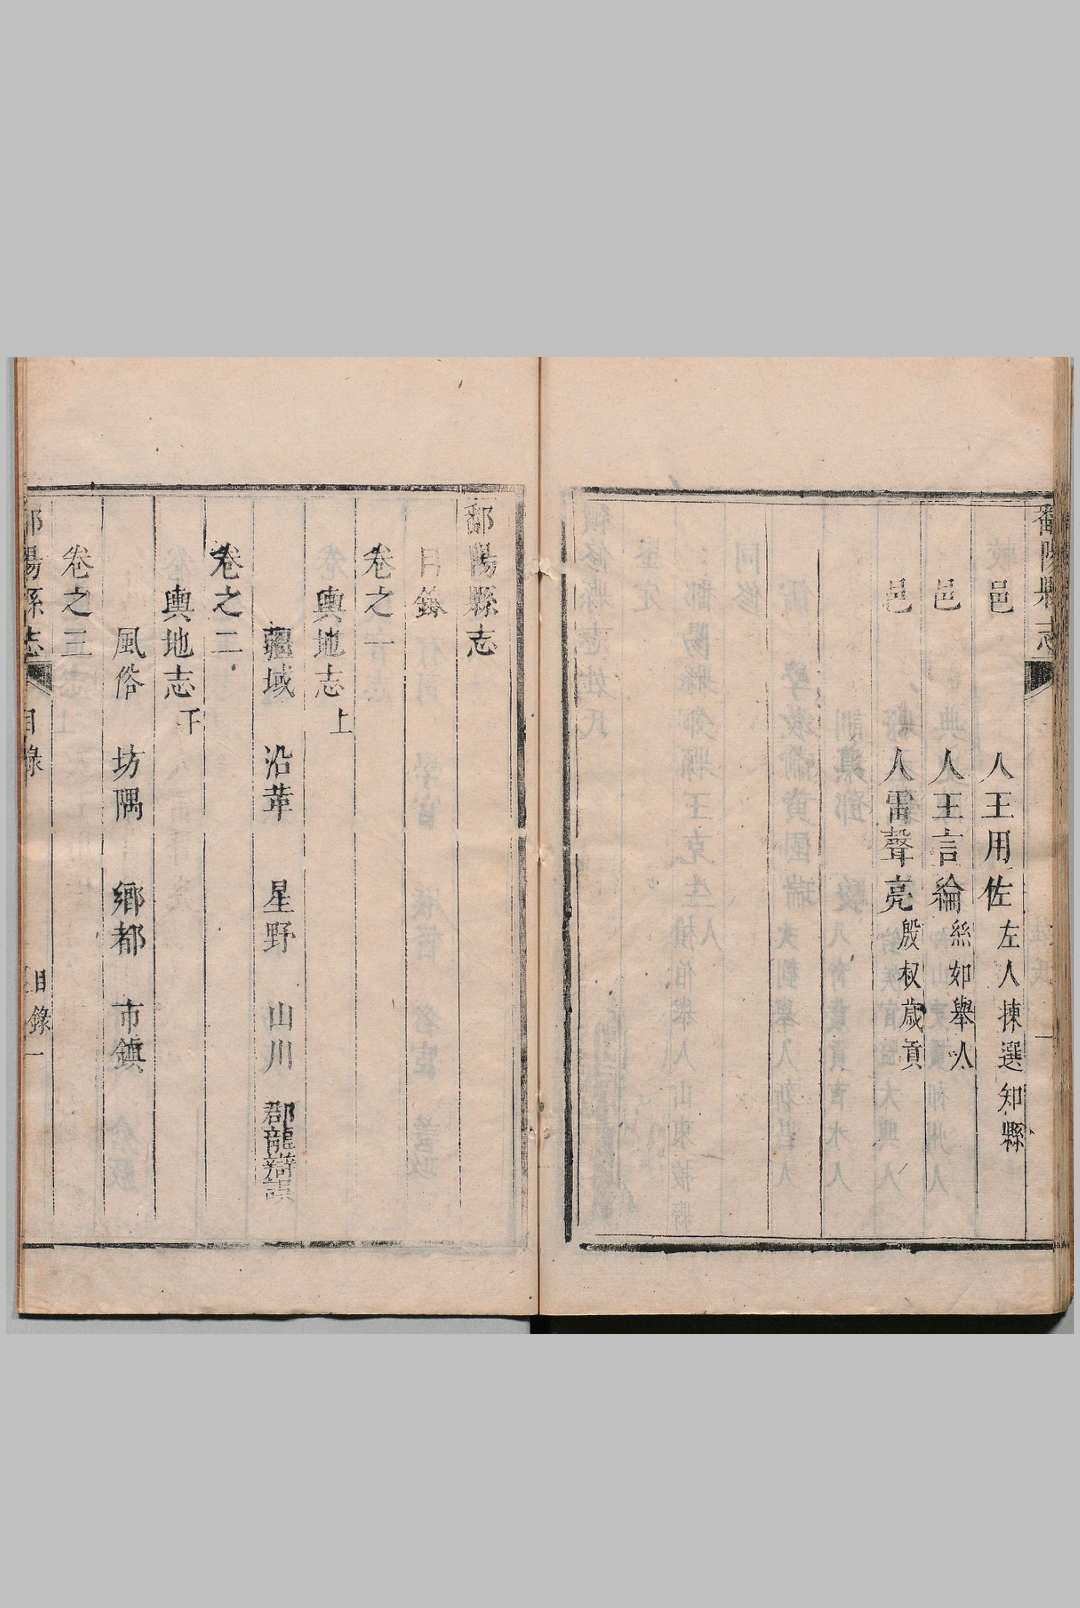 鄱陽縣志
邑 人王用佐 左人揀選知縣
邑 人王言綸 絲如舉人
邑 人雷聲亮 殷叔歲貢
鄱陽縣志
目錄
卷之一
輿地志上
疆域 沿革 星野 山川 郡龍辯誤
卷之二
輿地志下
風俗 坊隅 鄉都 市鎮
卷之三
鄱陽縣志 目錄 目錄一